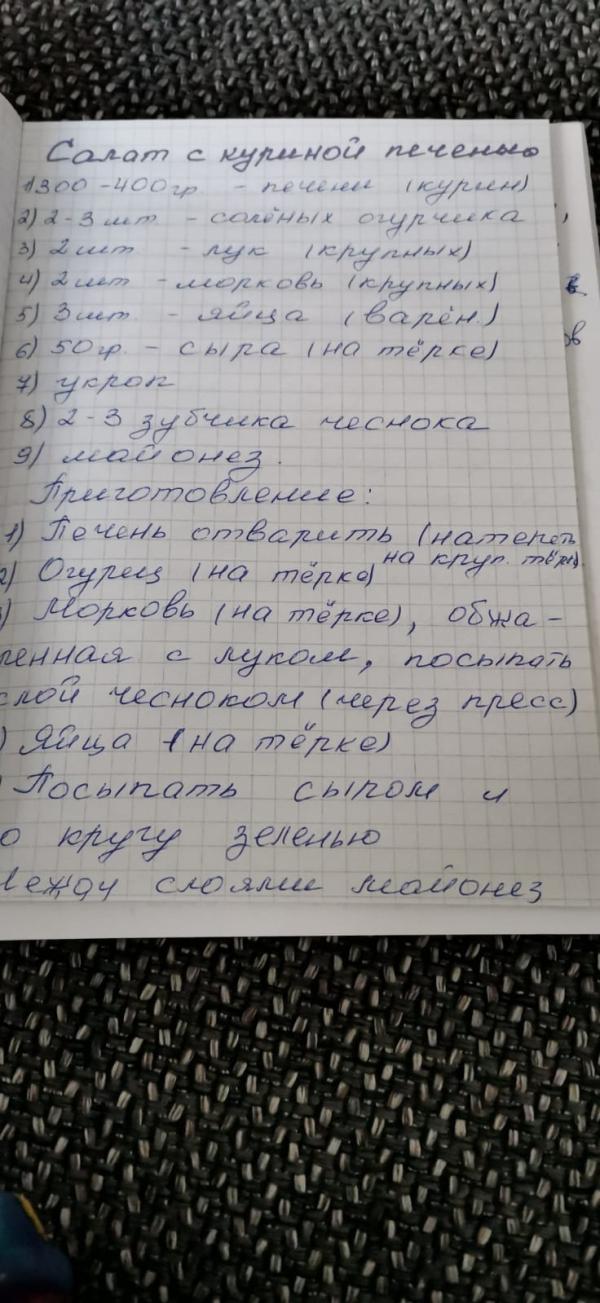 Салат с куриной печенью
1) 300-400гр. - печени (курин)
2) 2-3 шт - солёных огурчика
3) 2 шт - лук (крупных)
4) 2 шт - морковь (крупных)
5) 3 шт. - яйца (варён.)
6) 50 гр. - сыра (на тёрке)
7) укроп
8) 2-3 зубчика чеснока
9) майонез.
Приготовление:
1) Печень отварить (натереть
на круп. тёрке)
2) Огурец (на тёрке)
) Морковь (на тёрке), обжа-
ренная с луком, посыпать
слой чесноком (через пресс)
) Яйца (на тёрке)
Посыпать сыром и
о кругу зеленью
Между слоями майонез